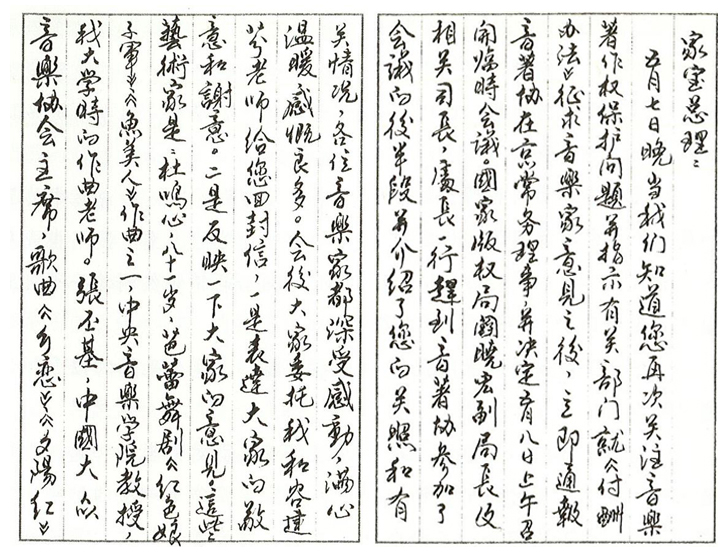 家宝总理：
五月七日晚当我们知道您再次关注音樂
著作权保护问题并指示有关部门就《付酬
办法》征求音樂家意见之後，立即通報
音著协在京常务理事，并决定五月八日上午召
開临時会議。國家版权局阎晓宏副局長及
相关司長，處長一行趕到音著协参加了
会議的後半段并介绍了您的关照和有
关情况，各位音樂家都深受感動，满心
温暖感慨良多。会後大家委托我和谷建
芬老师给您回封信，一是表達大家的敬
意和謝意。二是反映一下大家的意见。這些
藝術家是：杜鳴心，八十一岁，芭蕾舞剧《红色娘
子军》《魚美人》作曲之一，中央音樂学院教授，
我大学時的作曲老师。張丕基，中國大众
音樂协会主席，歌曲《乡恋》《夕陽红》